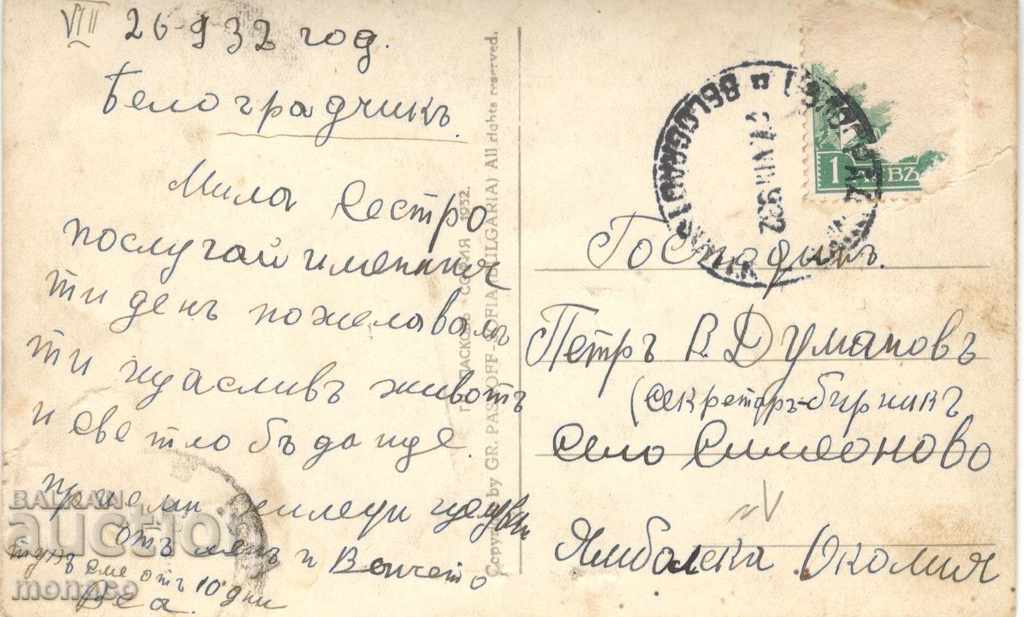 VIII 26-932 год.
Белоградчикъ.
Мила Сестро
послучай именния
ти денъ пожелавамъ
ти щасливъ животъ
и светло бъдаще.
приеми хиледи целувки
отъ менъ и Венчето
тукъ сме отъ 10 дни
Веа.
Copyr. by GR. PASKOFF-SOFIA (BULGARIA) All rights reserved.
ПАСКОВЪ - СОФИЯ 1932.
BELOGRADTCHIK
VIII 932
1 ЛВЪ
Господинъ.
Петръ В. Думановъ
(секретаръ-бирникъ
село Симеоново
Ямболска Околия
BALKAN
auction
monaco